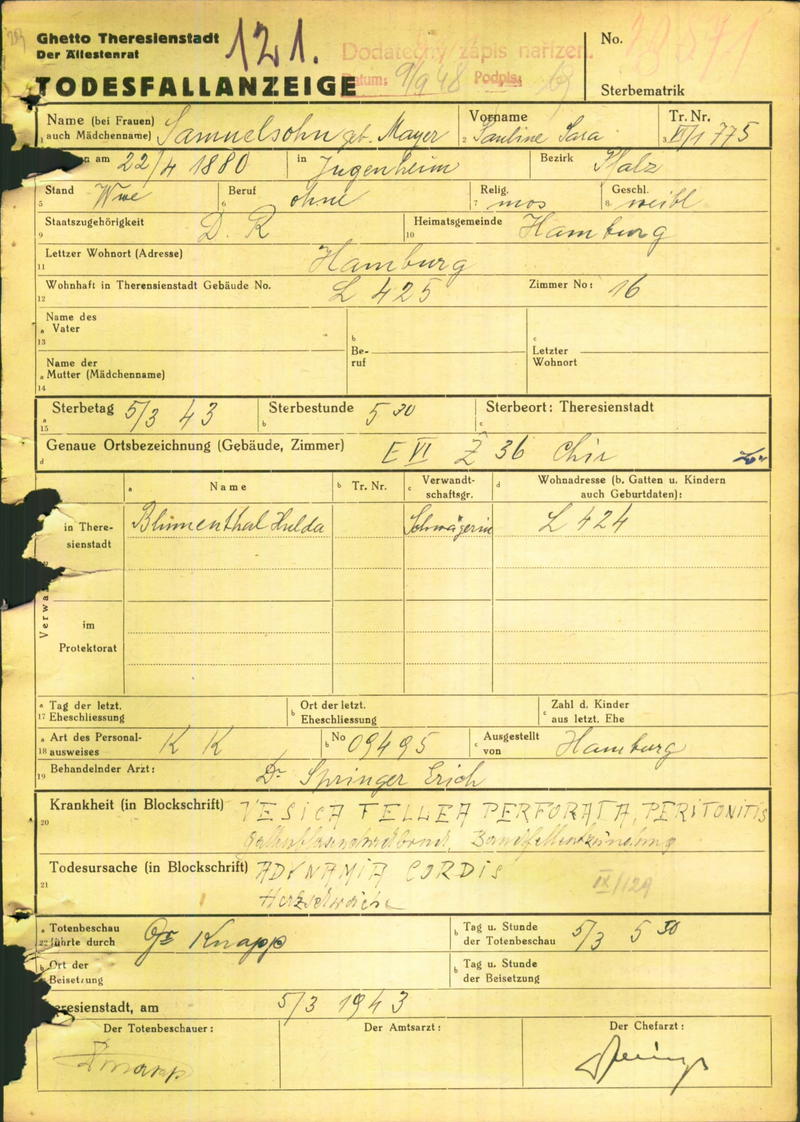 Ghetto Theresienstadt
Der Ältestenrat
121.
Dodatečný zápis nařízen.
Datum: 9/9 48 Podpis:
No.
TODESFALLANZEIGE
Sterbematrik
Name (bei Frauen) auch Mädchenname) Samuelsohn geb. Mayer
1
Vorname Pauline Sara
2
Tr. Nr. VI/1 775
3
am 22/4 1880 in Jugenheim Bezirk Pfalz
Stand Wwe Beruf ohne Relig. mos Geschl. weibl
5 6 7 8
Staatszugehörigkeit D. R Heimatsgemeinde Hamburg
9 10
Lettzer Wohnort (Adresse) Hamburg
11
Wohnhaft in Therensienstadt Gebäude No. L 425 Zimmer No: 16
12
Name des
a Vater
13
b Beruf
c Letzter Wohnort
Name der
a Mutter (Mädchenname)
14
Sterbetag 5/3 43 Sterbestunde 5 30 Sterbeort: Theresienstadt
a 15 b c
Genaue Ortsbezeichnung (Gebäude, Zimmer) E VI Ž 36 Chir
d
a Name b Tr. Nr. c Verwandtschaftsgr. d Wohnadresse (b. Gatten u. Kindern auch Geburtdaten):
in Theresienstadt Blumenthal Hulda Schwägerin L 424
im Protektorat
a Tag der letzt.
17 Eheschliessung
b Ort der letzt. Eheschliessung
c Zahl d. Kinder aus letzt. Ehe
a Art des Personal-
18 ausweises K K b No 09495 c Ausgestellt von Hamburg
19 Behandelnder Arzt: Dr Springer Erich
Krankheit (in Blockschrift) VESICA FELLEA PERFORATA, PERITONITIS
20
Gallenblasendurchbruch, Bauchfellentzündung
Todesursache (in Blockschrift) ADYNAMIA CORDIS
21 IX/129
Herzschwäche
a Totenbeschau
22 führte durch Knapp
b Tag u. Stunde der Totenbeschau 5/3 5 30
b Ort der Beisetzung
b Tag u. Stunde der Beisetzung
eresienstadt, am 5/3 1943
Der Totenbeschauer: Der Amtsarzt: Der Chefarzt:
Knapp